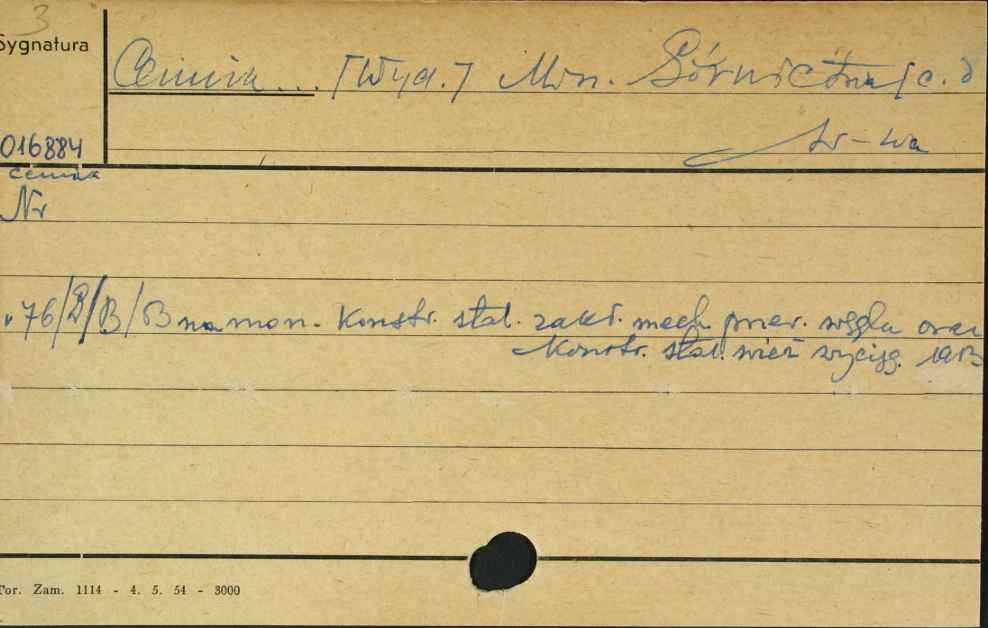 3
Sygnatura
Cennik... [Wyd.] Min. Górnictwa [c. d
W-wa
016884
cennik
Nr
"76/B/B/B na mon. Konstr. stal. zakł. mech. przer. węgla oraz
Konstr. stal. wież wyciąg. 1953
Tor. Zam. 1114 - 4. 5. 54 - 3000